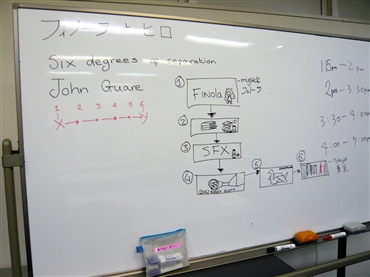 フィノーラ と ヒロ
Six degrees of separation
John Guare
1 2 3 4 5 6
X → → → → Y
① FINOLA
myself
フィノーラ
②
③ SFX
④
⑤
⑥
Tokyo
東京
1:15pm - 2pm
2pm - 3:30pm
3:30 - 4:00pm
4:00 - 5:00pm